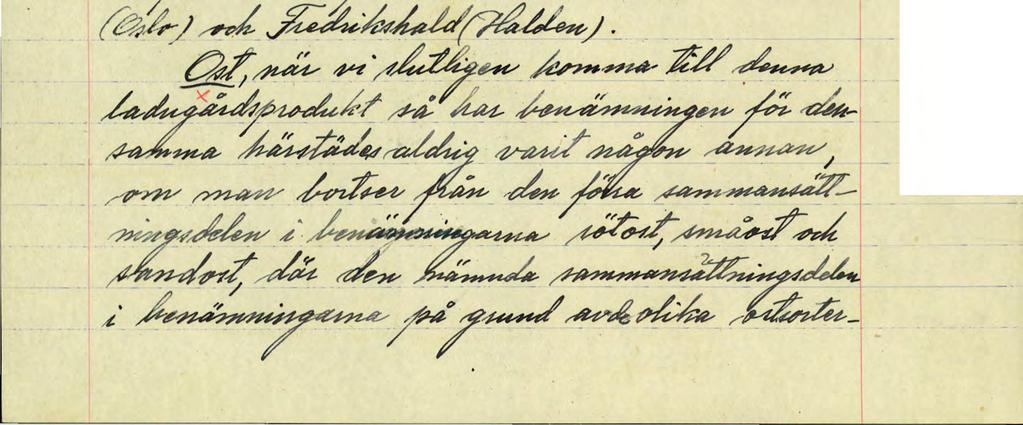 (Oslo) och Fredrikshald (Halden).
Ost, när vi slutligen komma till denna
ladugårdsprodukt så har benämningen för den-
samma härstädes aldrig varit någon annan,
om man bortser från den första sammansätt-
ningsdelen i benämningarna sötost, småost och
sandost, där den nämnda sammansättningsdelen
i benämningarna på grund av de olika ostsorter-